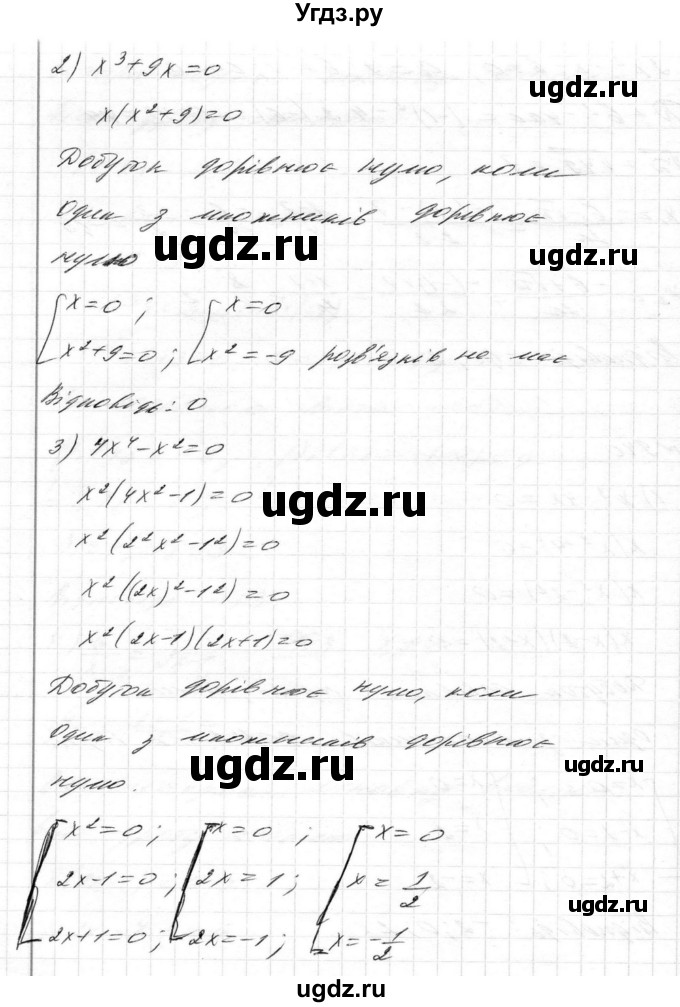 Угдз.ру
2) x³+9x=0
ugdz.ru
x(x²+9)=0
Добуток дорівнює нулю, коли
один з множників дорівнює
ugdz.ru ugdz.ru
нулю
[x=0; [x=0
x²+9=0; x²=-9 розв'язків не має
Відповідь: 0
3) 4x⁴-x²=0
x²(4x²-1)=0
ugdz.ru ugdz.ru
x²(2²x²-1²)=0
x²((2x)²-1²)=0
x²(2x-1)(2x+1)=0
Добуток дорівнює нулю, коли
один з множників дорівнює
ugdz.ru ugdz.ru
нулю.
[x²=0; [x=0; [x=0
2x-1=0; 2x=1; x=1/2
2x+1=0; 2x=-1; x=-1/2
ugdz.ru